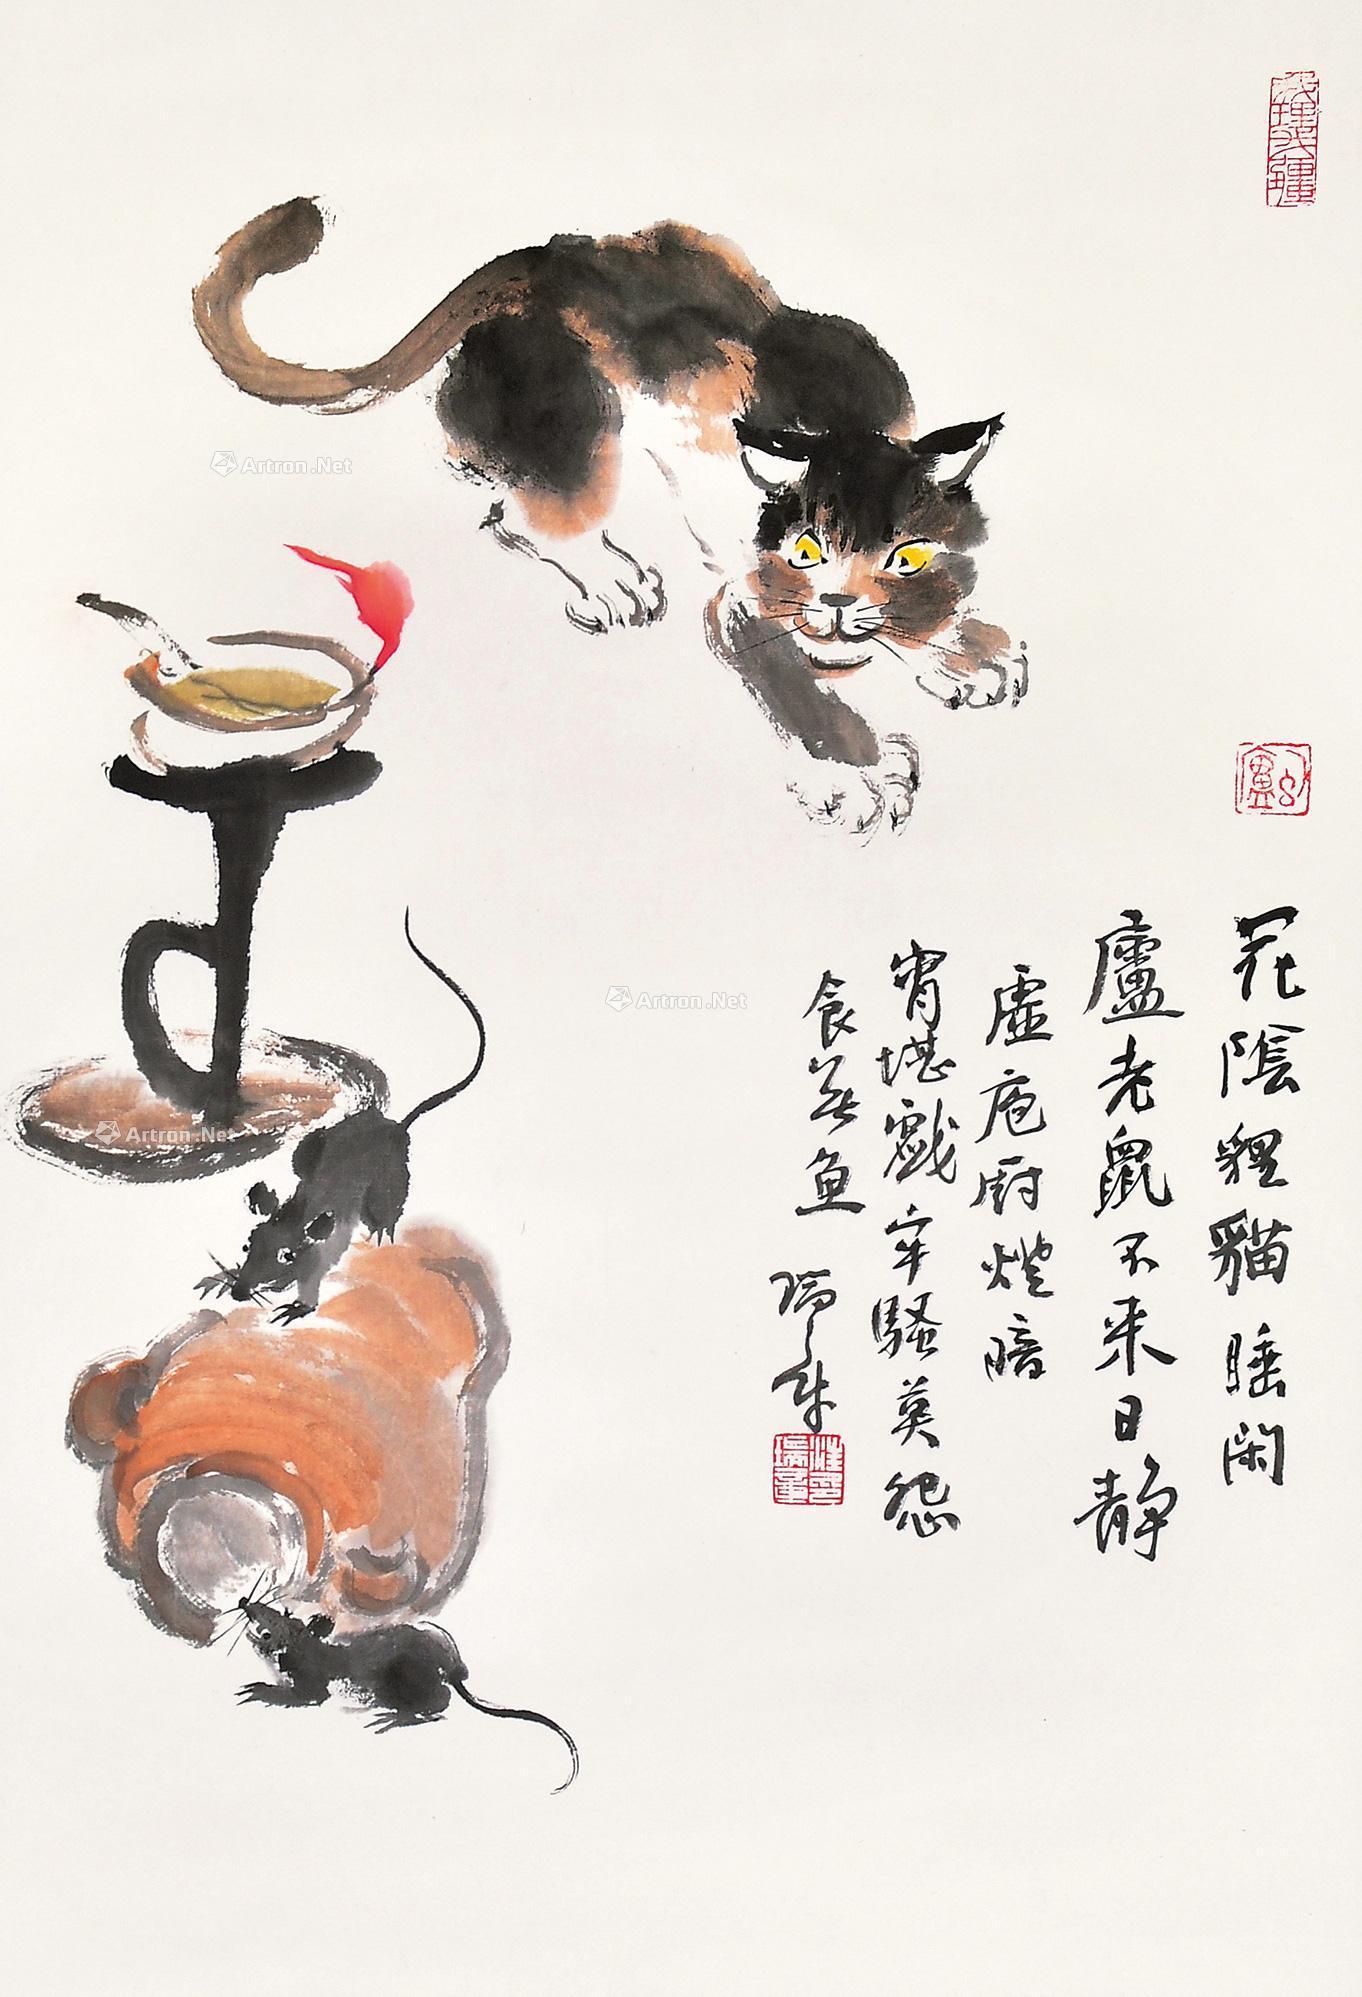 花陰貍貓睡閑
廬老鼠不来日静
虛庖厨燈暗
宵堪戲牢騷莫怨
食無魚
瑞年
Artron.Net
Artron.Net
Artron.Net